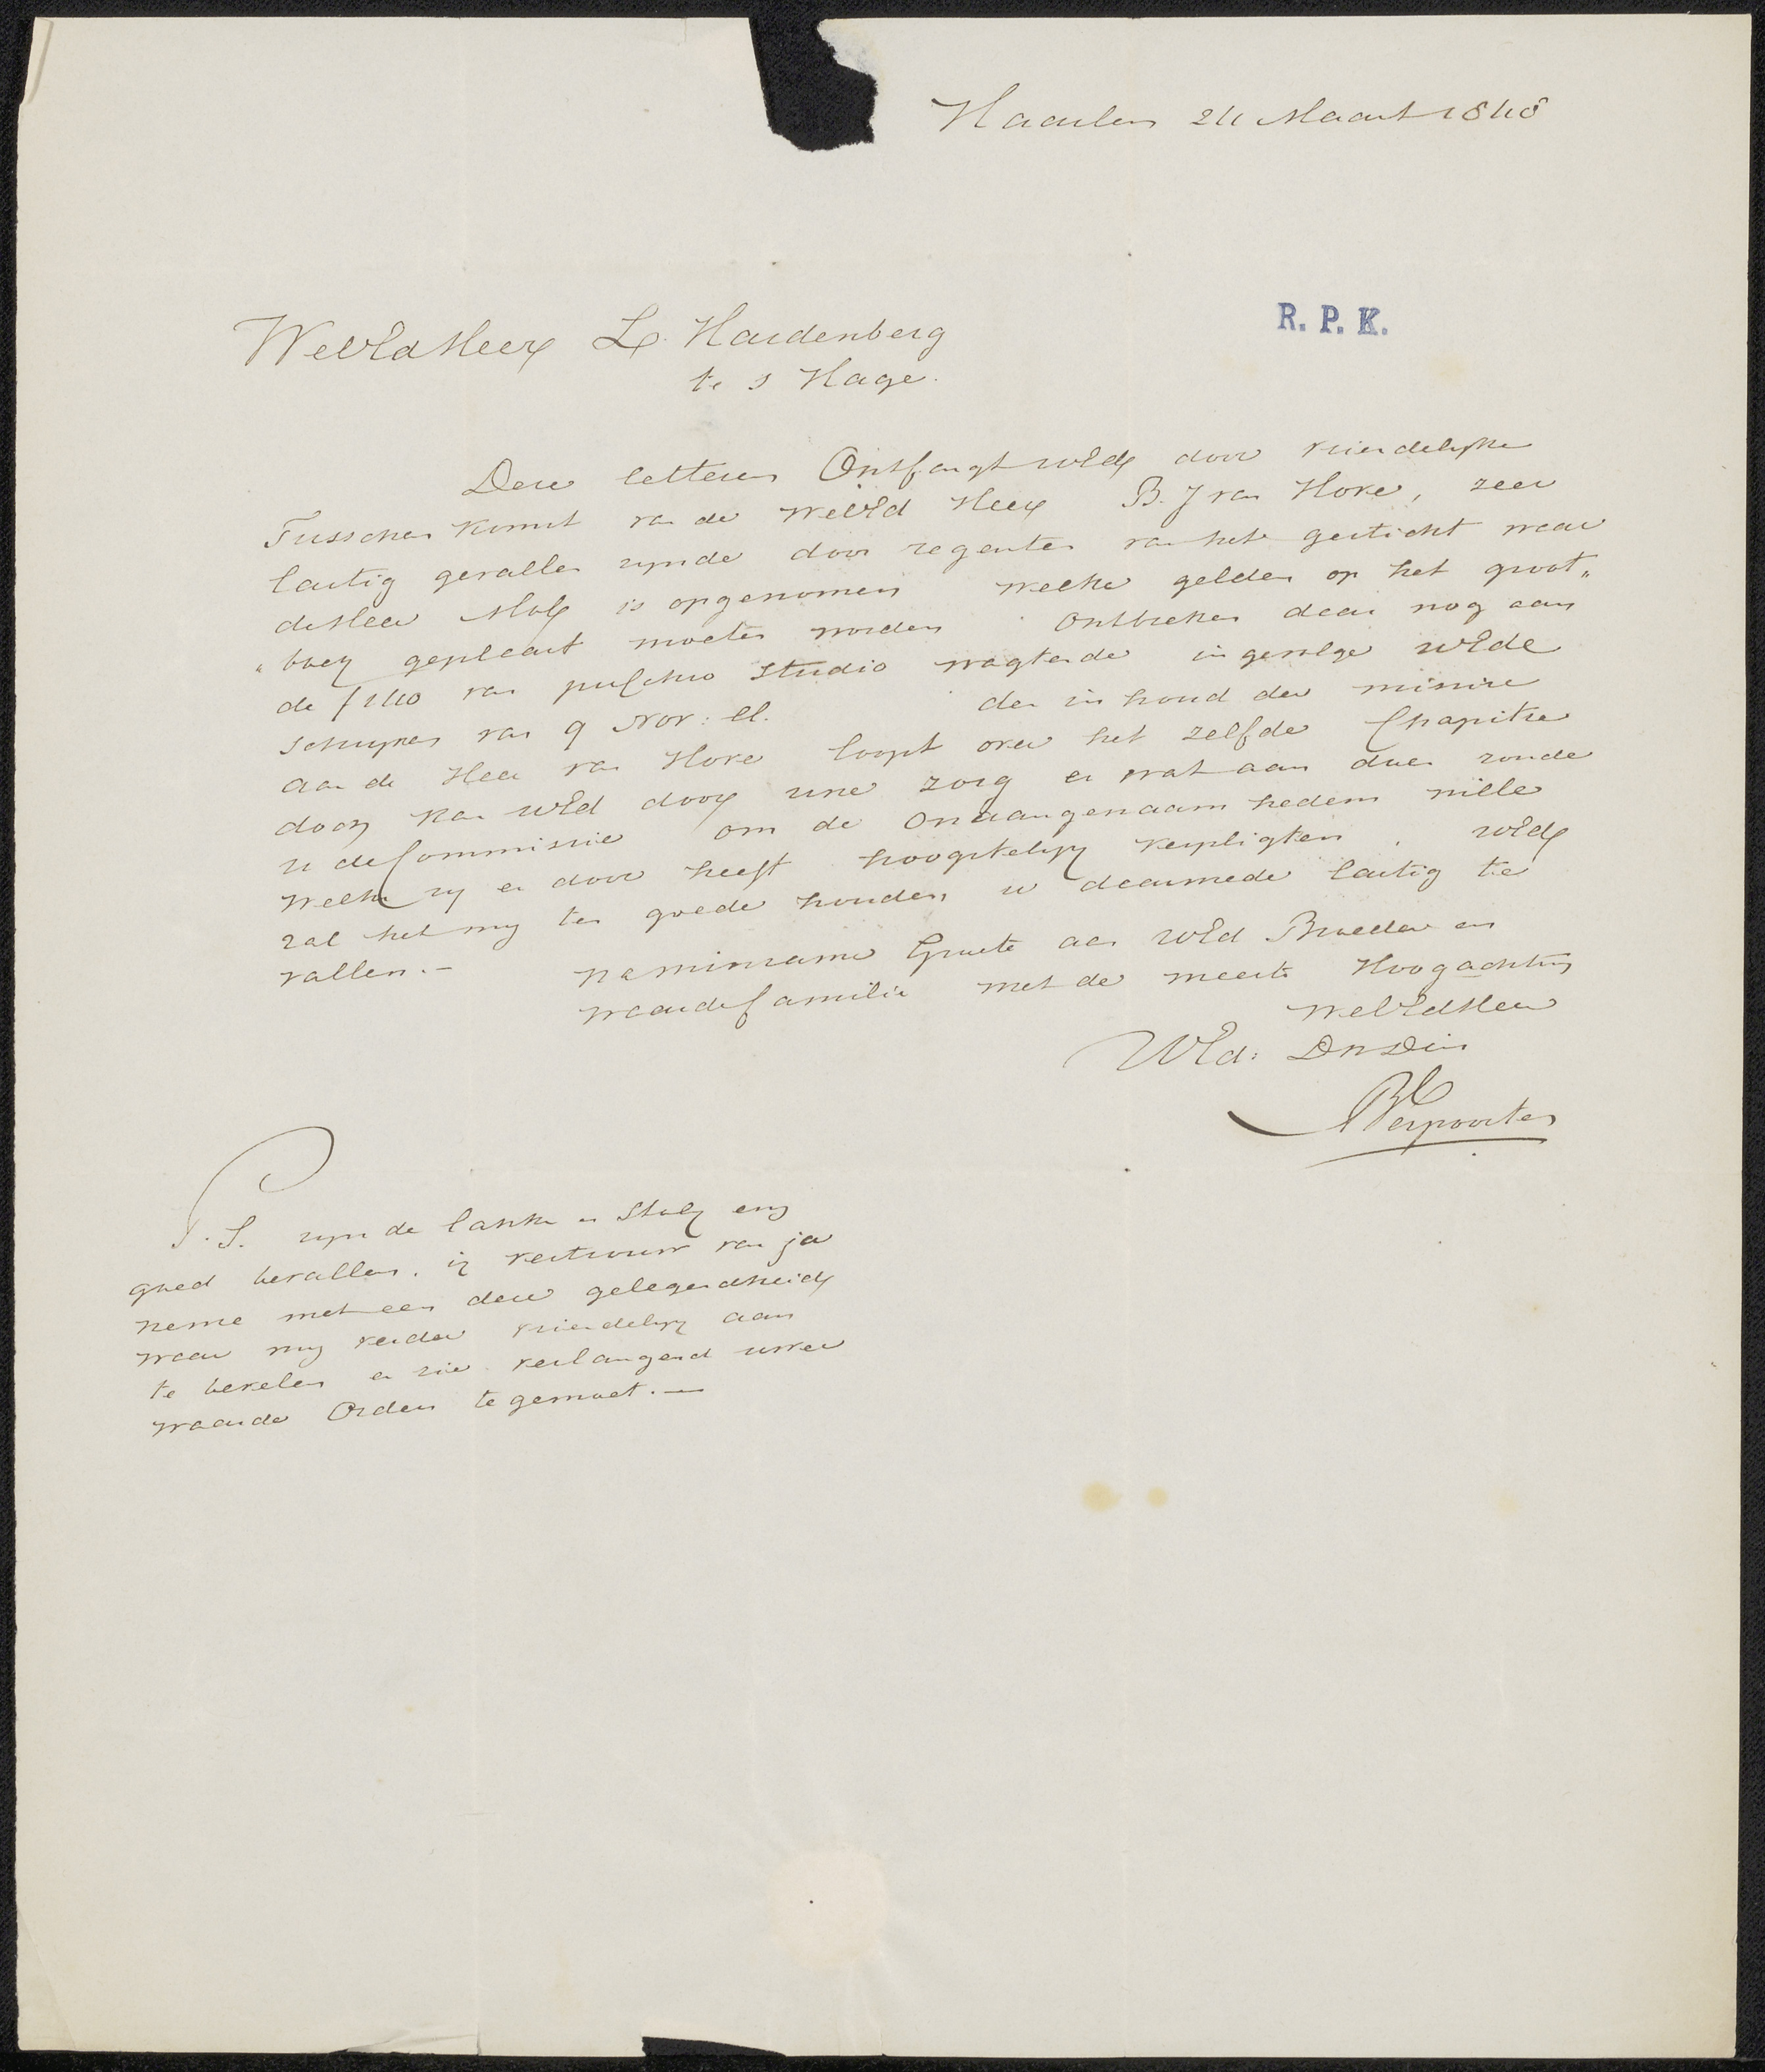 Haarlem 24 Maart 1848
R. P. K.
WelEdHeer L. Hardenberg
te s Hage.
Deze letteren Ontfangt UEdl door vriendelyke
Tusschen Komst van de WelEd Heer B. J van Hove, zeer
lastig gevallen zynde door regenten van het gesticht waar
de Heer is opgenomen welke gelden op het groot„
„boek geplaast moeten worden Ontbreken daar nog aan
de f 140 van pulchro Studio wagtende ingevolge UEde
schryven van 9 Nov: ll. den in houd der missive
aan de Heer van Hove loopt over het zelfde Chapitre
doch kan UEd door uwe zorg er wat aan doen zoude
U de Commissie om de Onaangenaamheden wille
welke zy er door heeft hoogstelyk verpligten. UEdl
zal het my ten goede houden U daarmede lastig te
vallen. — na minzame Groete aan UEd Broeder en
waarde familie met de meeste Hoogachting
WelEdHeer
UEd: DWDien
Verpoorten
P. S. zyn de lakke en enz
goed bevallen. ik vertrouw van ja
neme met een deze gelegendheid
waar my verder vriendelyk aan
te bevelen en zie verlangend uwer
waarde Orders te gemoet. —